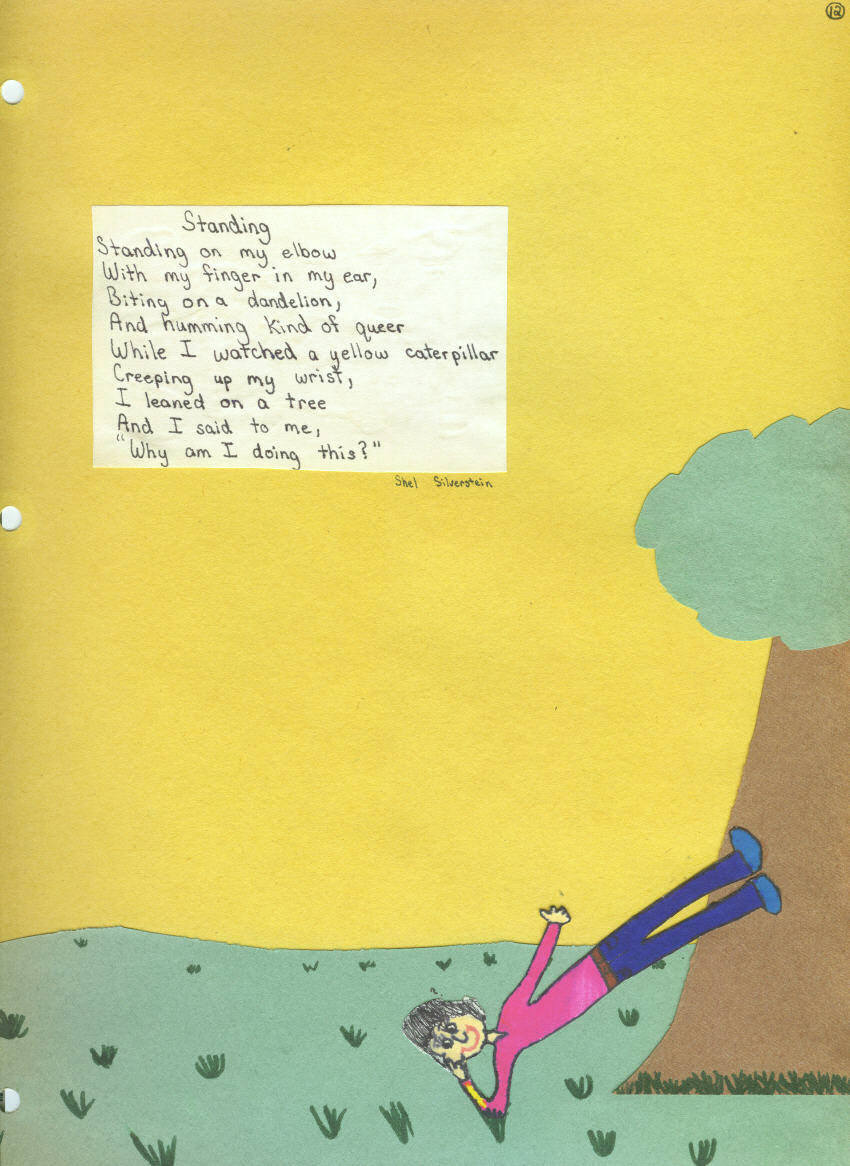 12
Standing
Standing on my elbow
With my finger in my ear,
Biting on a dandelion,
And humming kind of queer
While I watched a yellow caterpillar
Creeping up my wrist,
I leaned on a tree
And I said to me,
"Why am I doing this?"
Shel Silverstein
?